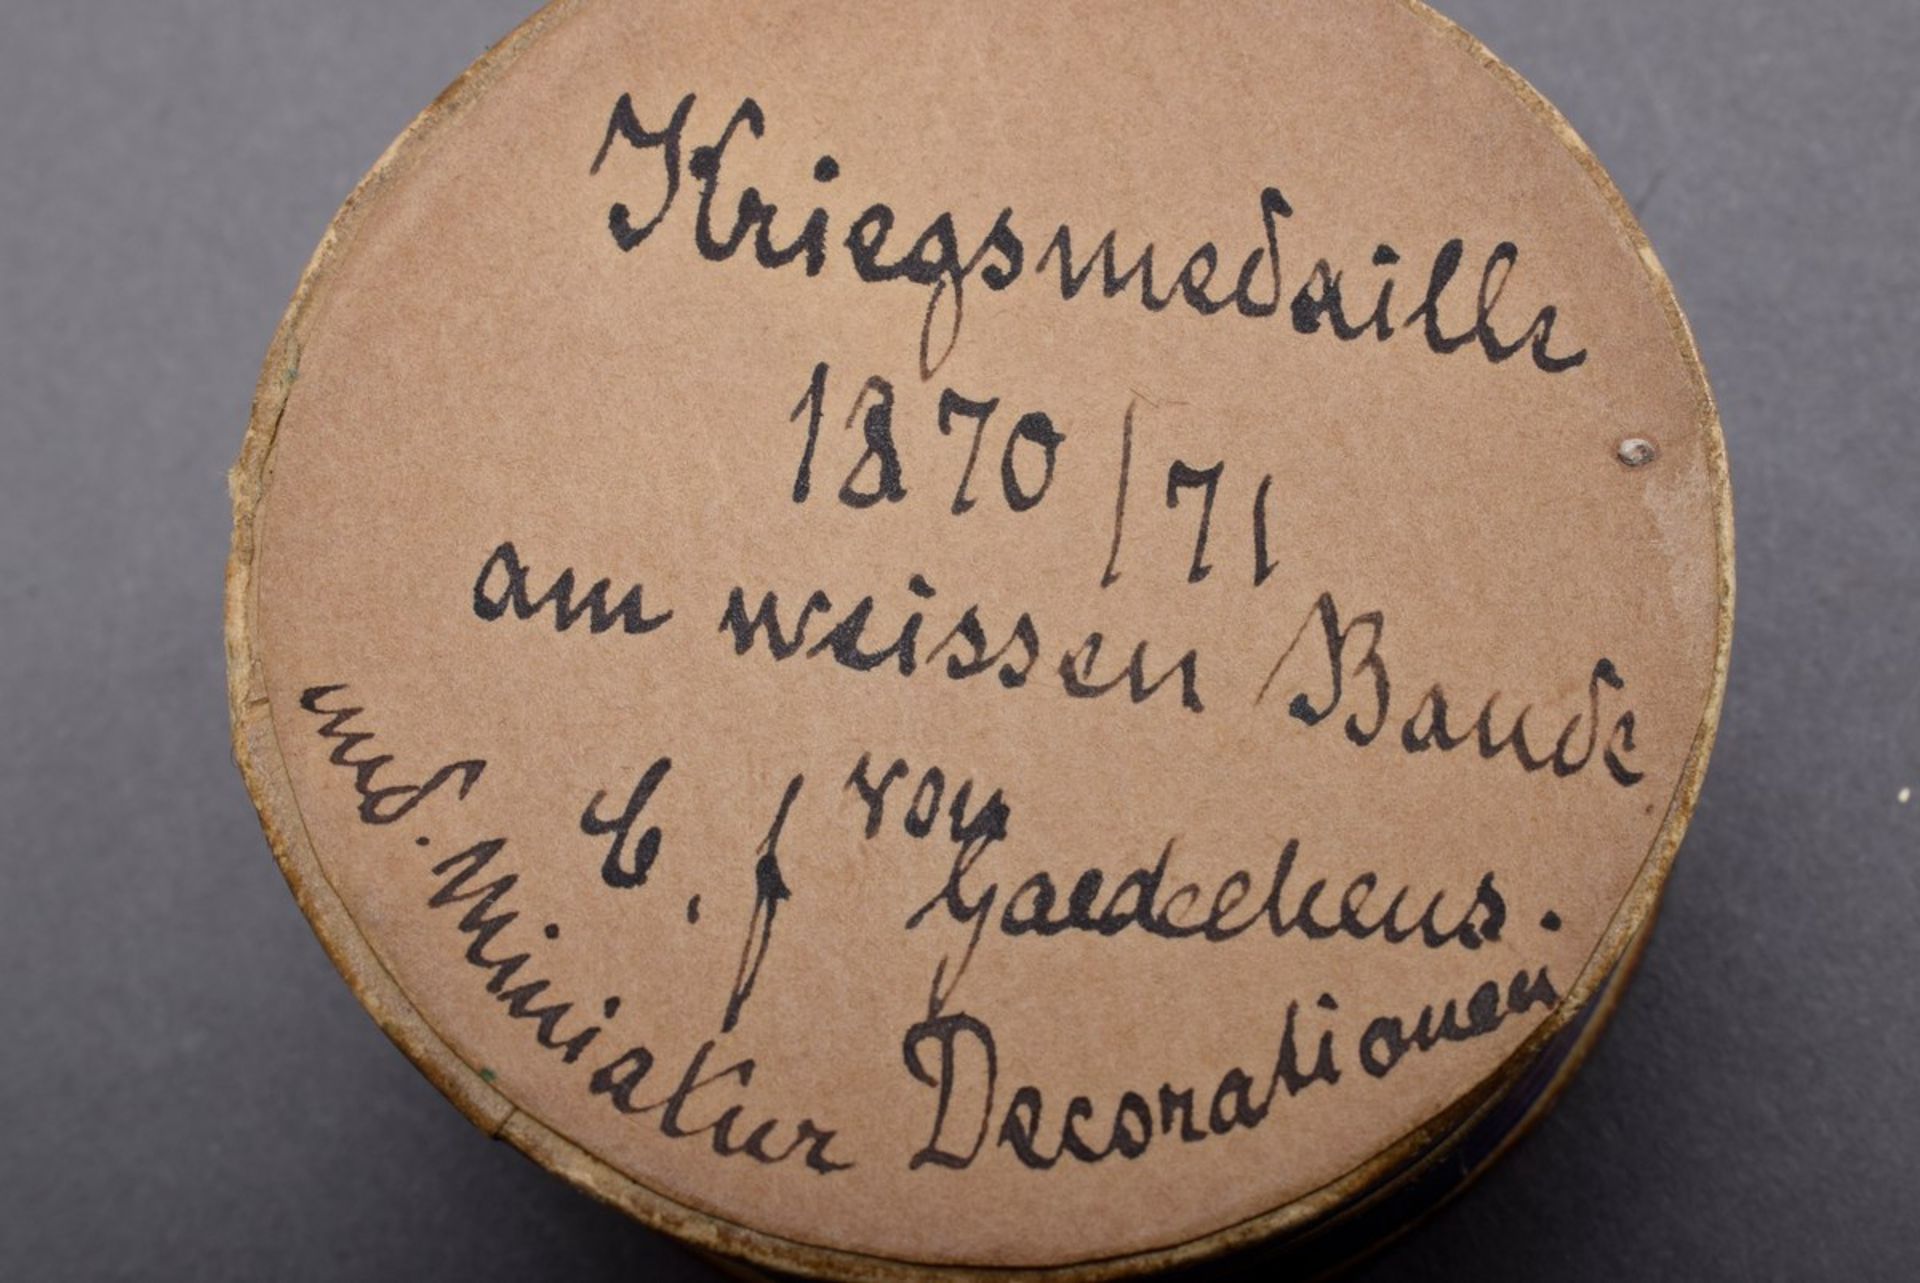 Kriegsmedaille
1870/71
am weissen Bande
C. f von Gaedechens.
und. Miniatur Decorationen